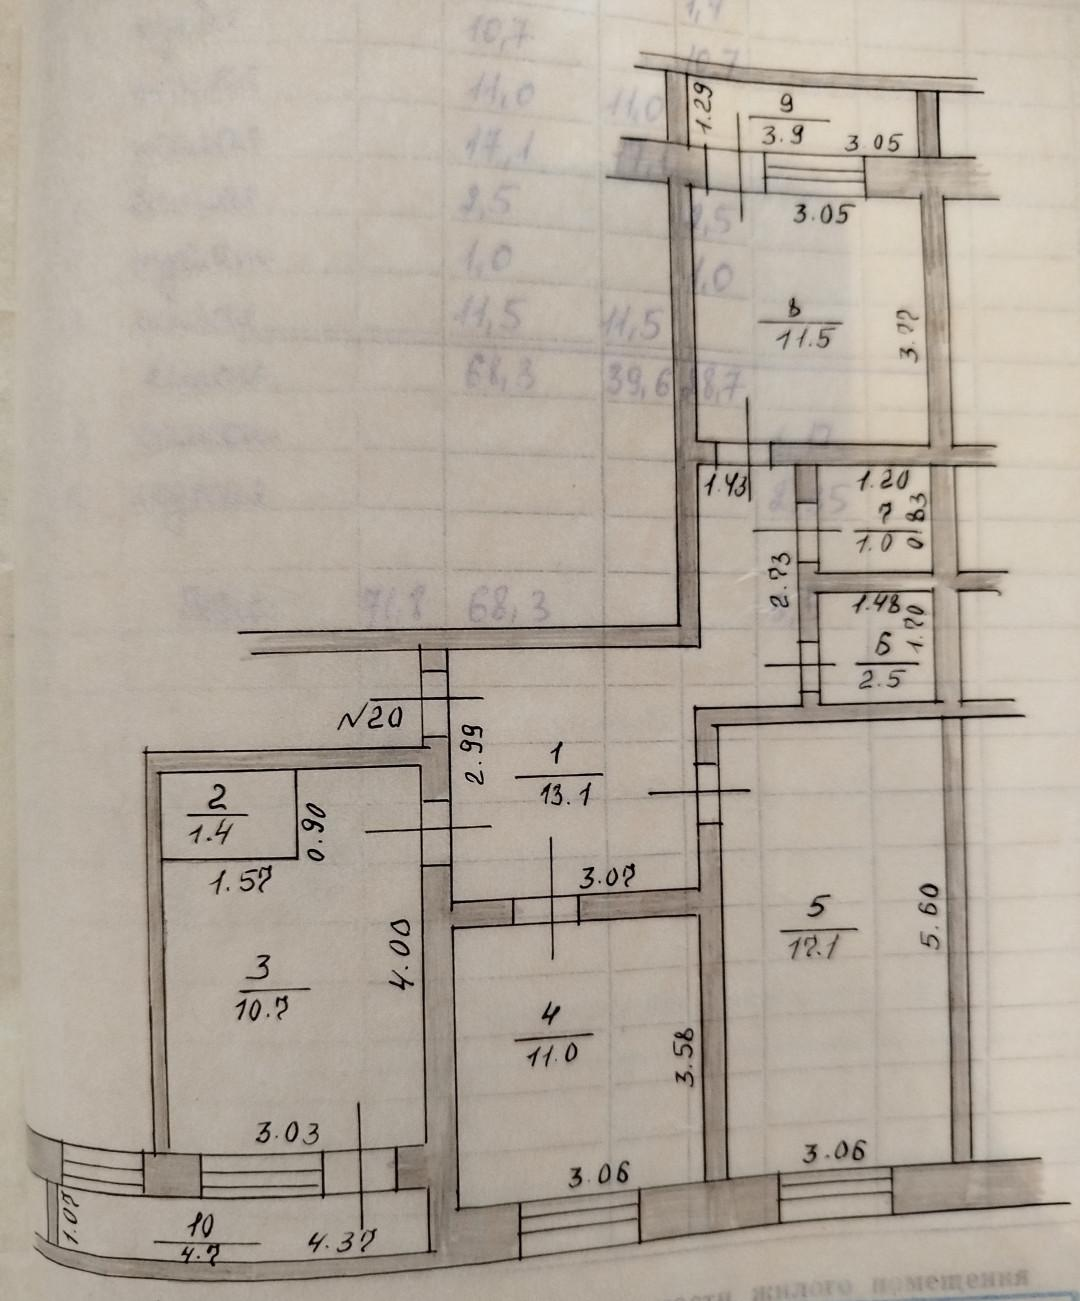 1.29
9
3.9
3.05
3.05
8
11.5
3.77
1.43
1.20
7
1.0
0.83
2.73
1.48
1.70
6
2.5
№20
2.99
1
13.1
2
1.4
0.90
1.57
3.07
3
10.7
4.00
4
11.0
3.58
5
17.1
5.60
3.03
3.06
3.06
1.07
10
4.7
4.37
1,4
10,7 10,7
11,0 11,0
17,1 17,1
2,5 2,5
1,0 1,0
11,5 11,5
68,3 39,6 28,7
71.8 68,3
жилого помещения